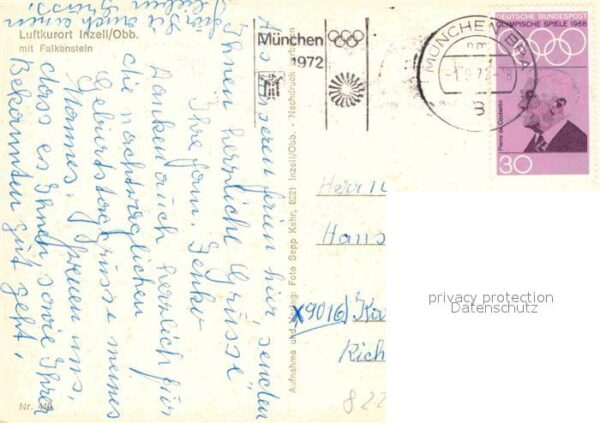 Luftkurort Inzell/Obb.
mit Falkenstein
Aus unseren ferien hier, senden
Ihnen herzliche Grüsse
Ihre fam.
Danken auch herzlich für
die nachträglichen
Geburtstagsgrüsse meines
Mannes. freuen uns,
dass es Ihnen sowie Ihren
Bekannten gut geht,
für Sie auch einen
lieben Gruss!
Nr.
Aufnahme und Verlag: Foto Sepp Kehr, 8221 Inzell/Obb. - Nachdruck verboten
München
1972
MÜNCHEN BPA
DEUTSCHE BUNDESPOST
OLYMPISCHE SPIELE 1968
Pierre de Coubertin
30
Herrn
Hans
X9016)
Rich
822
privacy protection
Datenschutz